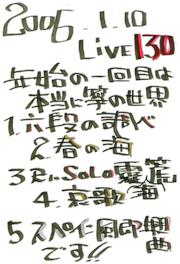 2006 1.10
LiVE130
年始の一回目は
本当に箏の世界
1六段の調べ
2春の海
3 SoLo
4.哀歌 海
5スペイン風即興曲
です!!